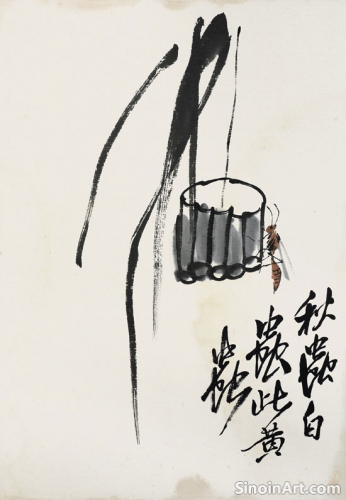 秋蟲白
蟲此黃
蟲
SinoinArt.com